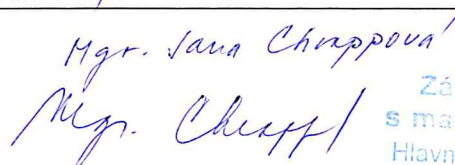 Mgr. Jana Chrappová
Mgr. Chrapp
Zá
s ma
Hlavn